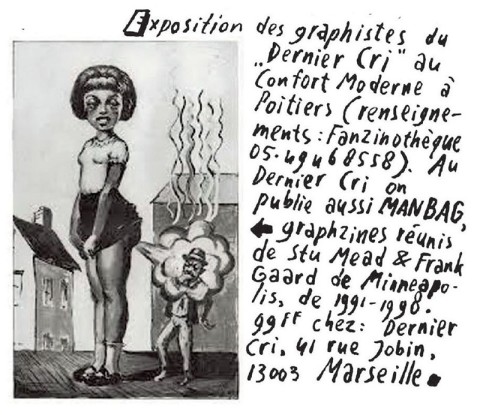 Exposition des graphistes du
„Dernier Cri" au
Confort Moderne à
Poitiers (renseigne-
ments : Fanzinothèque
05.49468558). Au
Dernier Cri on
publie aussi MANBAG,
graphzines réunis
de Stu Mead & Frank
Gaard de Minneapo-
lis, de 1991-1998.
99FF chez: Dernier
Cri, 41 rue Jobin,
13003 Marseille.